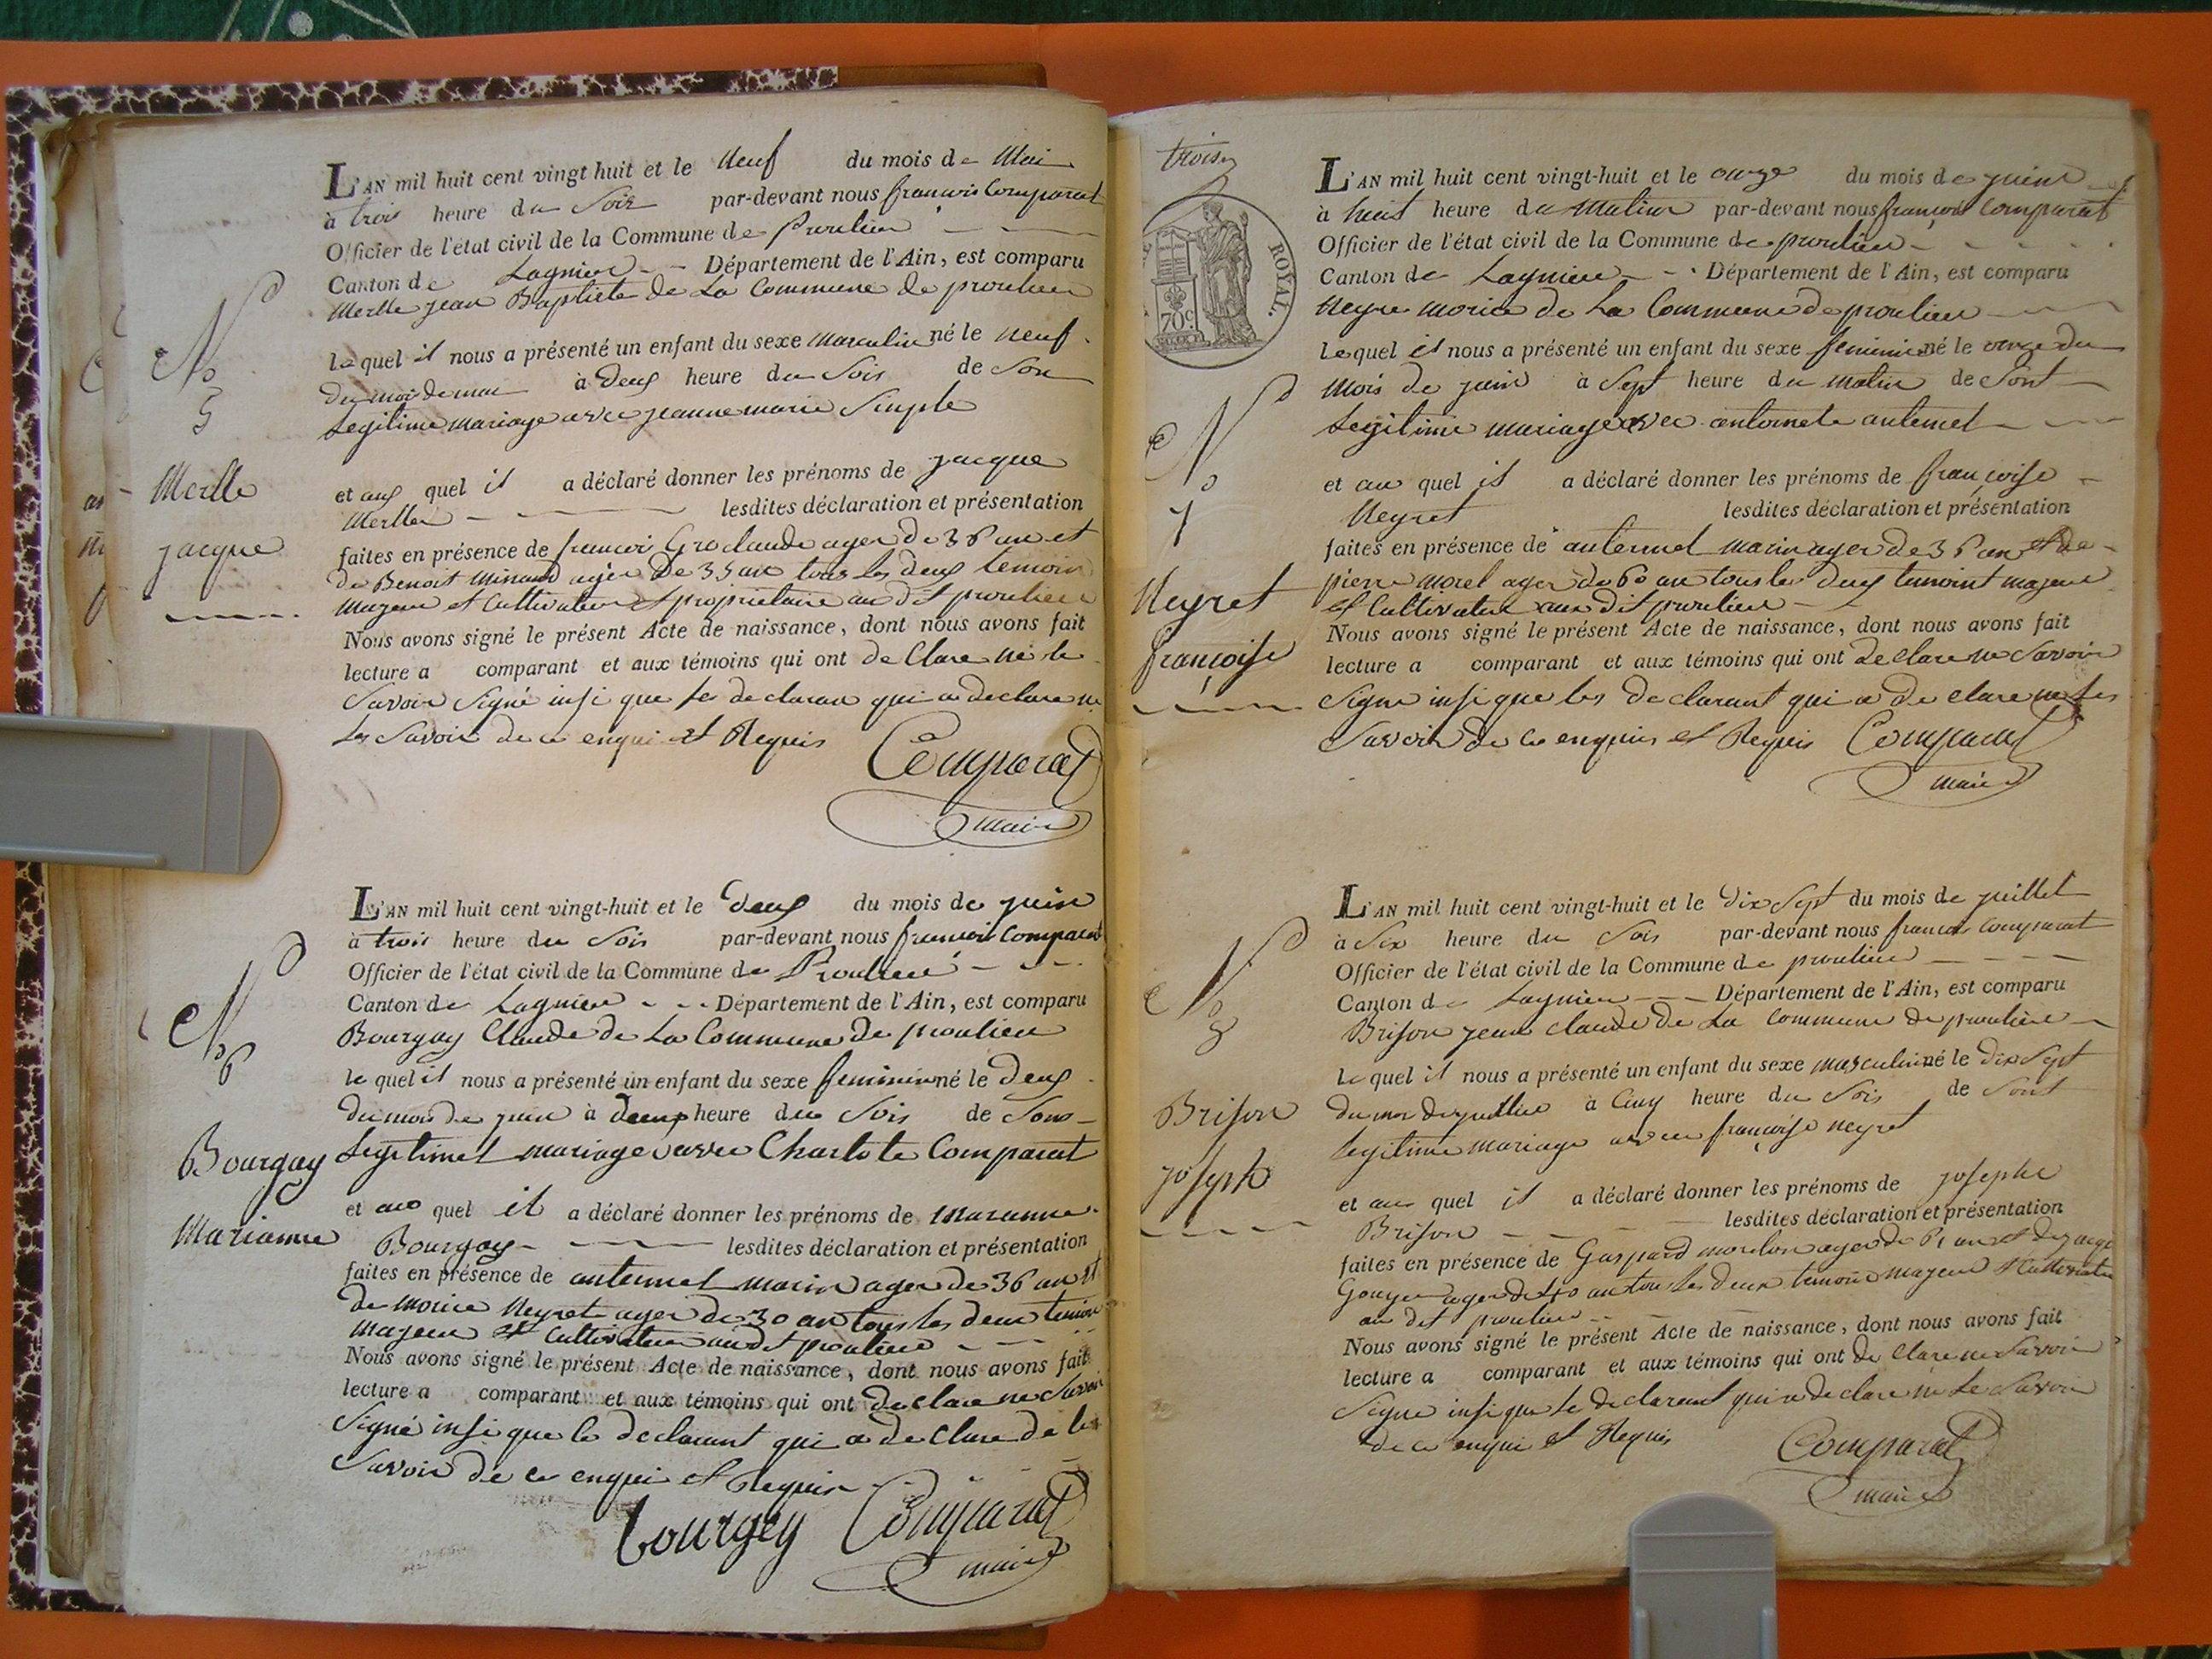 L'AN mil huit cent vingt huit et le neuf du mois de Mai
à trois heure du Soir par-devant nous francois Comparat
Officier de l'état civil de la Commune de Proulieu
Canton de Lagnieu Département de l'Ain, est comparu
Merlle jean Baptiste de La Commune de proulieu
le quel il nous a présenté un enfant du sexe masculin né le neuf
du moi de mai à deux heure du Soir de Son
Legitime mariage avec jeanne marie Simple
et auq quel il a déclaré donner les prénoms de jacque
Merlle lesdites déclaration et présentation
faites en présence de francoi Groclaude ager de 36 an et
de Benoit Minaud ager de 35 an tous les deux temoin
majeur et Cultivateur et proprietaire au dit proulieu
Nous avons signé le présent Acte de naissance, dont nous avons fait
lecture a comparant et aux témoins qui ont de Clare ne le
Savoir Signé insi que le declaran qui a declare ne
Les Savoir de ce enqui et Requis
Comparat
maire
No
5
Merlle
jacque
L'AN mil huit cent vingt-huit et le deux du mois de juin
à trois heure du Soir par-devant nous francois Comparat
Officier de l'état civil de la Commune de Proulieu
Canton de Lagnieu Département de l'Ain, est comparu
Bourgay Claude de La Commune de proulieu
le quel il nous a présenté un enfant du sexe feminin né le deux
du moi de juin à deux heure du Soir de Son
Legitimet mariage avec Charlote Comparat
et au quel il a déclaré donner les prénoms de Marianne
Bourgay lesdites déclaration et présentation
faites en présence de antermet marin ager de 36 an et
de morice Neyret ager de 30 an tous les deux temoin
majeur et Cultivateur au dit proulieu
Nous avons signé le présent Acte de naissance, dont nous avons fait
lecture a comparant et aux témoins qui ont declare ne Savoir
Signé insi que le declarant qui a de Clare de le
Savoir de ce enqui et Requis
bourgey Comparat
maire
No
6
Bourgay
Marianne
troise
ROYAL.
70c
L'AN mil huit cent vingt-huit et le onze du mois de juin
à huit heure du Matin par-devant nous françois Comparat
Officier de l'état civil de la Commune de proulieu
Canton de Lagnieu Département de l'Ain, est comparu
Neyre morice de La Commune de proulieu
Le quel il nous a présenté un enfant du sexe feminin né le onze du
mois de juin à Sept heure du matin de Sont
Legitime mariage avec antoinete antermet
et au quel il a déclaré donner les prénoms de françoise
Neyret lesdites déclaration et présentation
faites en présence de antermet marin ager de 36 an et de
pierre morel ager de 60 an tous les deux temoint majeur
et Cultivateur au dit proulieu
Nous avons signé le présent Acte de naissance, dont nous avons fait
lecture a comparant et aux témoins qui ont declare ne Savoir
Signe insi que les declarant qui a de clare ne les
Savoir de ce enquis et Requis Comparat
maire
No
7
Neyret
françoise
L'AN mil huit cent vingt-huit et le dix Sept du mois de juillet
à Six heure du Soir par-devant nous francois Comparat
Officier de l'état civil de la Commune de proulieu
Canton de Lagnieu Département de l'Ain, est comparu
Brison jean claude de La Commune de proulieu
Le quel il nous a présenté un enfant du sexe masculin né le dix Sept
du moi de juillie à Cinq heure du Soir de Sont
legitime mariage avec françoise neyret
et au quel il a déclaré donner les prénoms de josephe
Brison lesdites déclaration et présentation
faites en présence de Gaspard morelon ager de 61 an et de jacque
Gouger ager de 40 an tous les deux temoin majeur et Cultivateur
au dit proulieu
Nous avons signé le présent Acte de naissance, dont nous avons fait
lecture a comparant et aux témoins qui ont de Clare ne Savoir
Signe insi que le declarant qui a declare ne Le Savoir
de ce enqui et Requis Comparat
maire
No
8
Brison
joseph